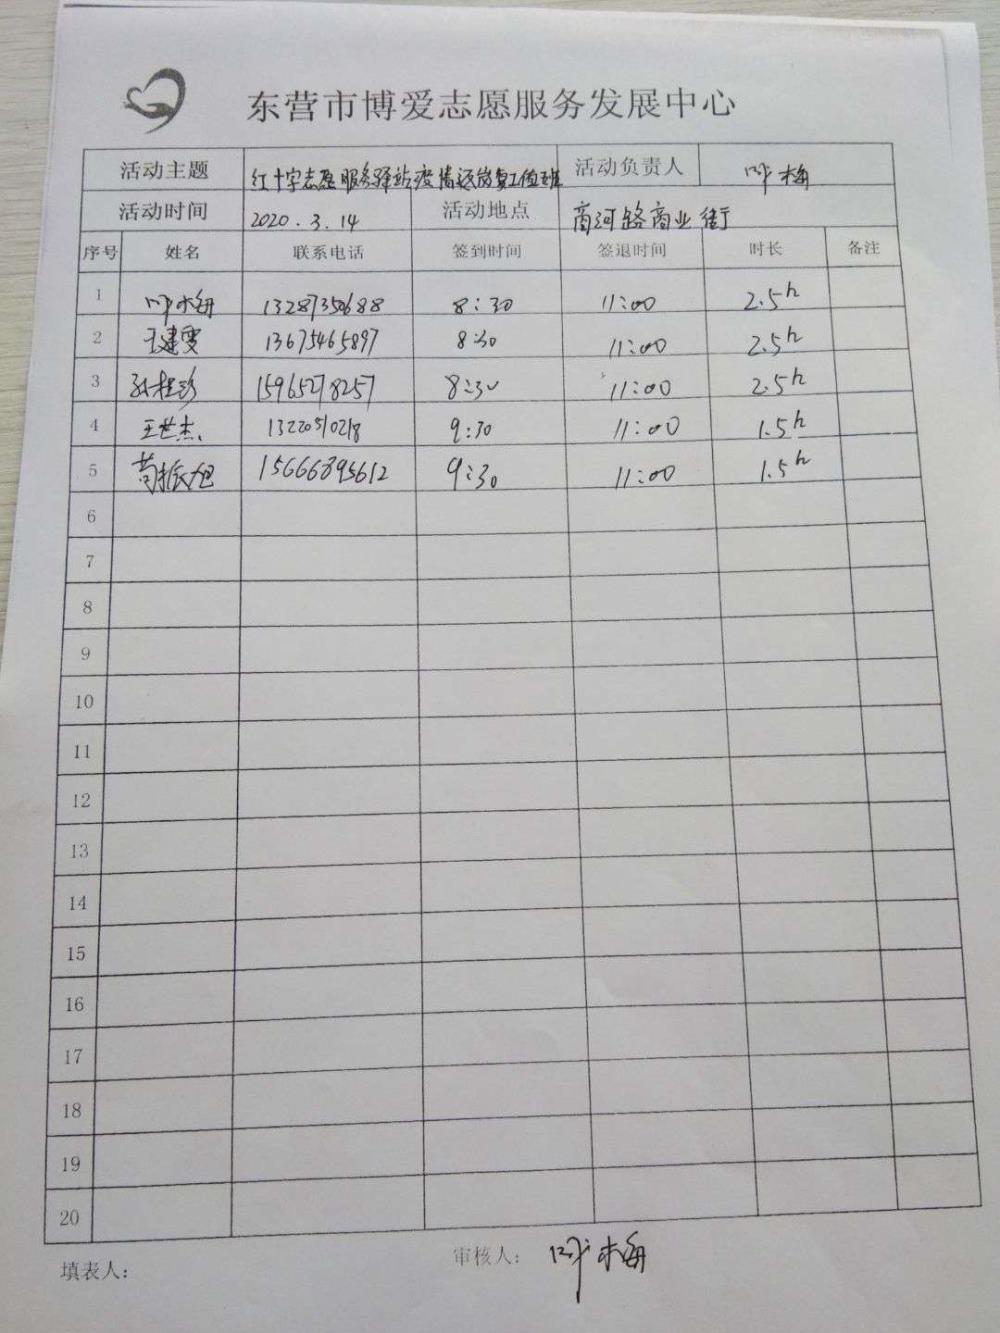 东营市博爱志愿服务发展中心
活动主题 红十字志愿服务驿站疫情返岗复工值班 活动负责人 叶梅
活动时间 2020.3.14 活动地点 商河路商业街
序号 姓名 联系电话 签到时间 签退时间 时长 备注
1 叶梅 13287350688 8:30 11:00 2.5h
2 王建雯 13675465897 8:30 11:00 2.5h
3 15965278257 8:30 11:00 2.5h
4 王世杰 13220510218 9:30 11:00 1.5h
5 苟振旭 15666895612 9:30 11:00 1.5h
6
7
8
9
10
11
12
13
14
15
16
17
18
19
20
填表人: 审核人: 叶梅